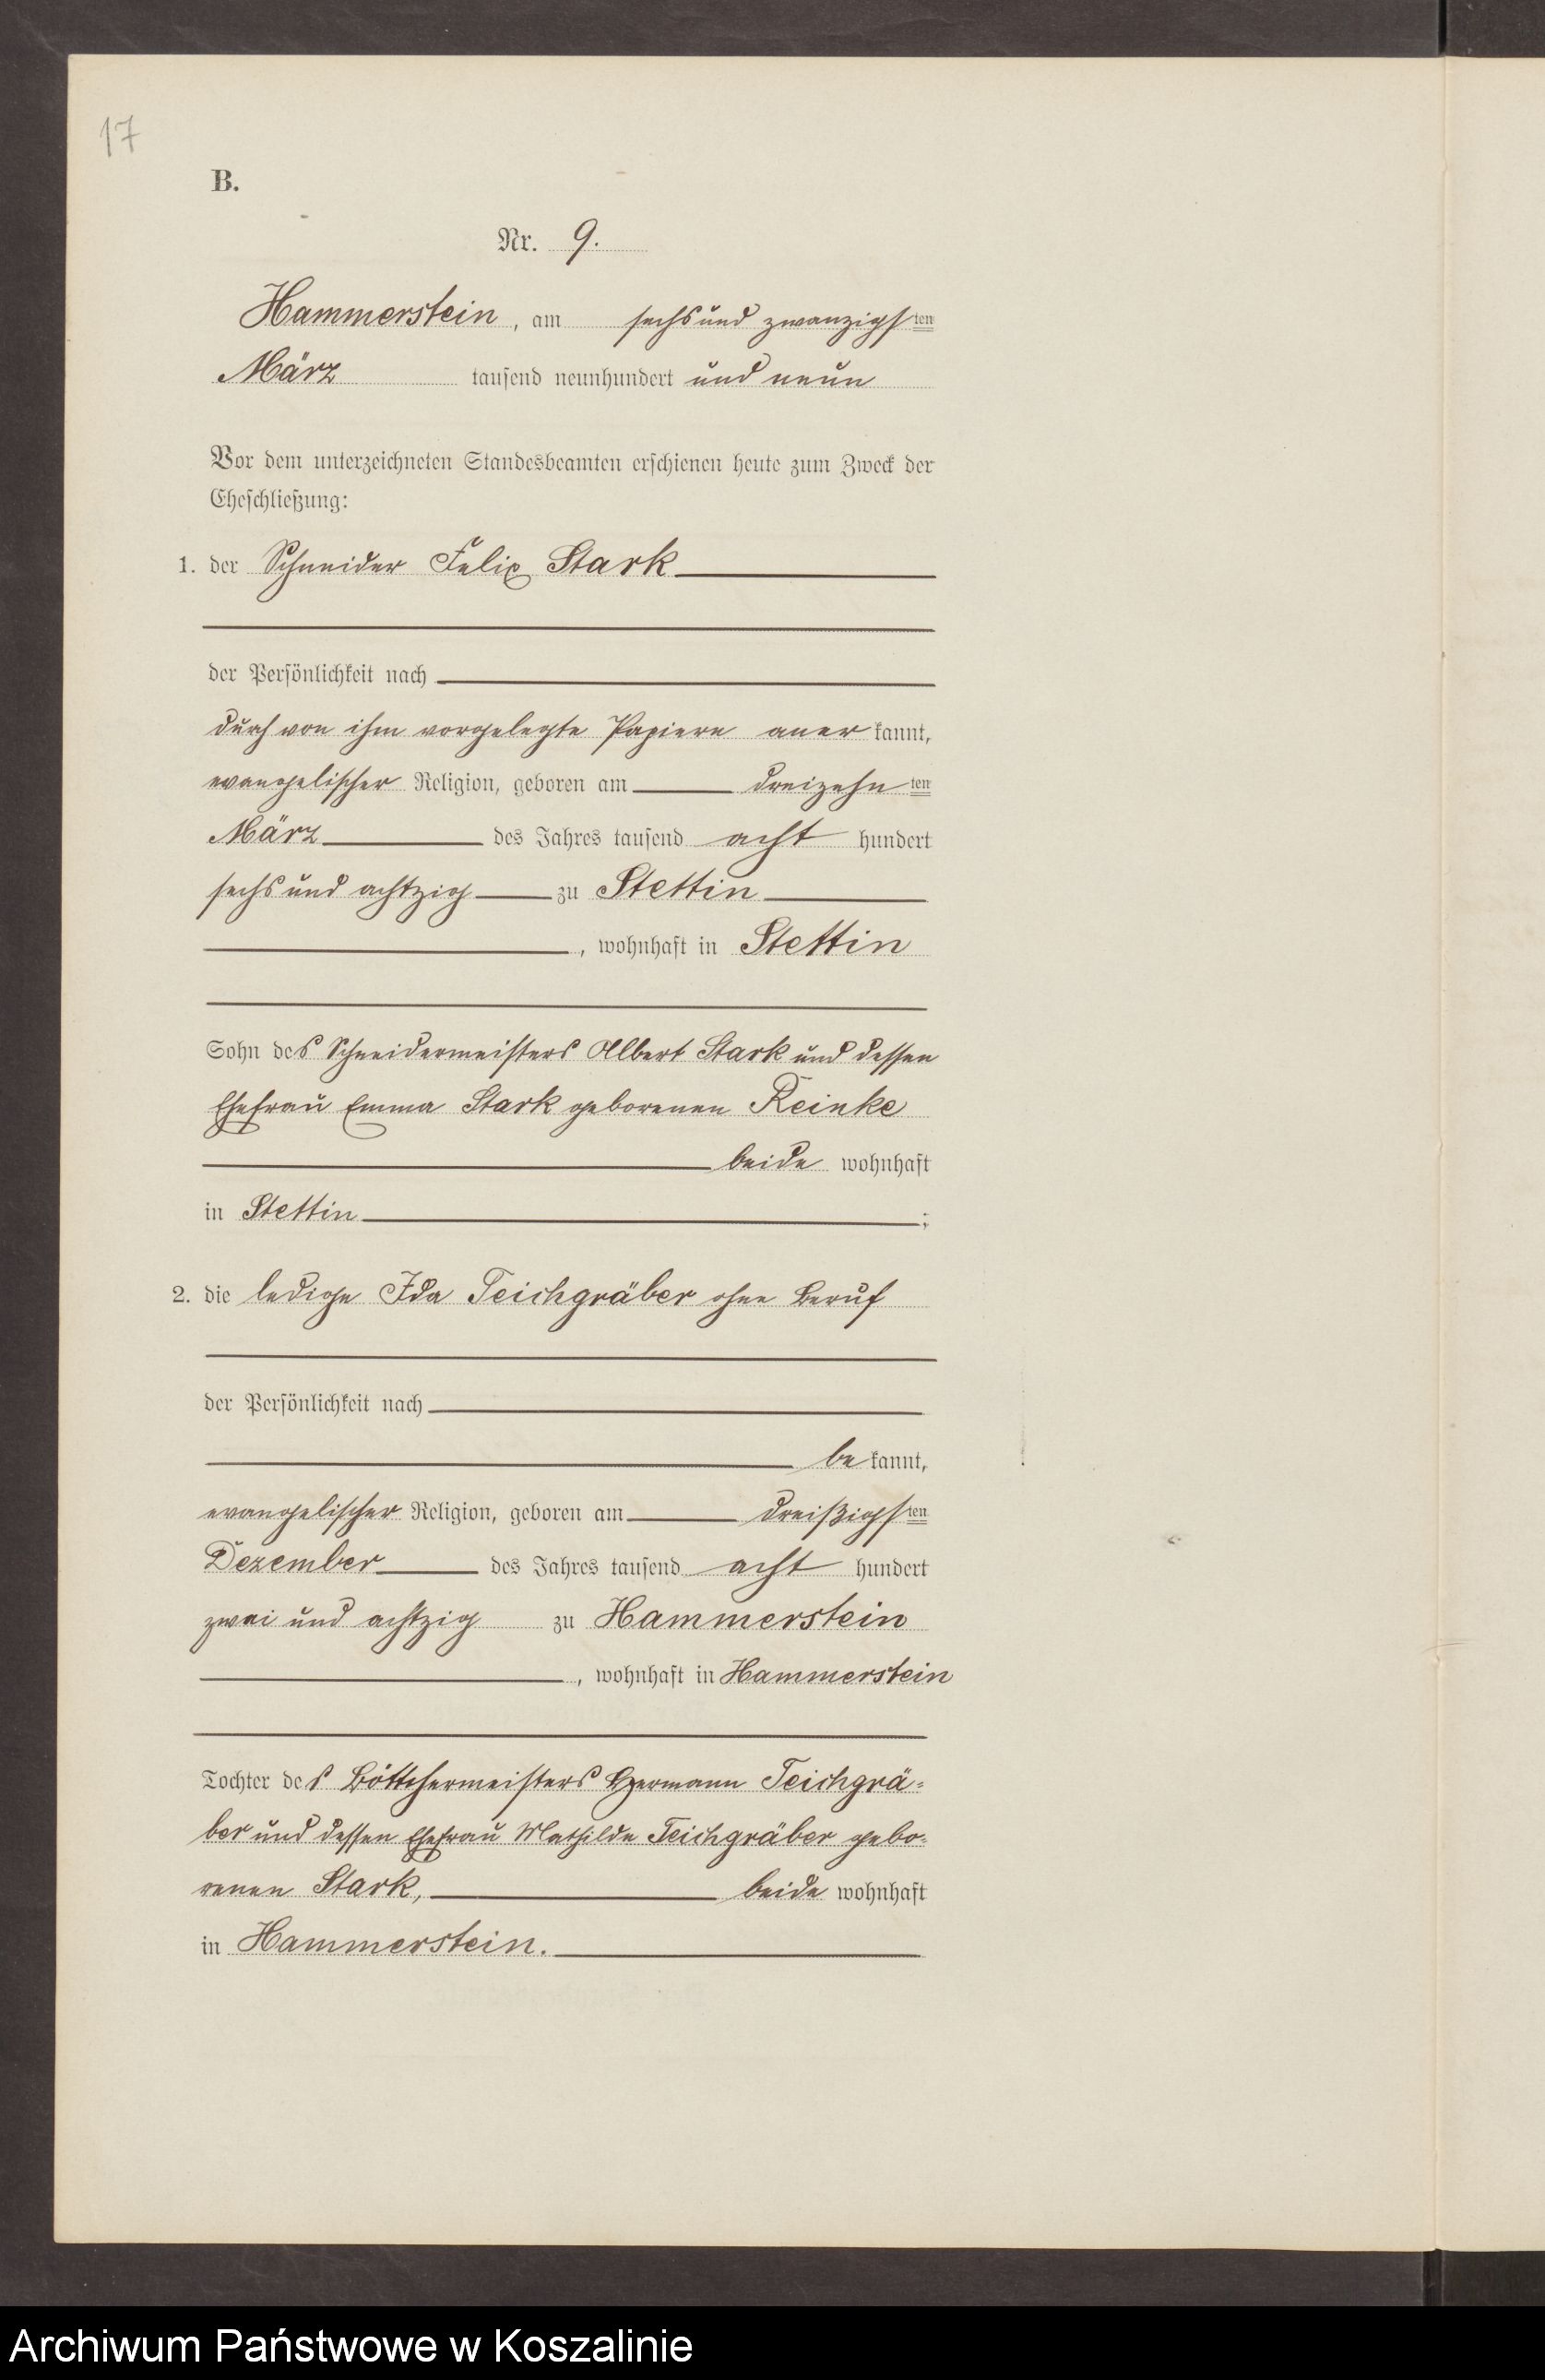 17
B.
Nr. 9.
Hammerstein, am sechsund zwanzigsten
März tausend neunhundert und neun
Vor dem unterzeichneten Standesbeamten erschienen heute zum Zweck der
Eheschließung:
1. der Schneider Felix Stark
der Persönlichkeit nach
durch von ihm vorgelegte Papiere anerkannt,
evangelischer Religion, geboren am dreizehnten
März des Jahres tausend acht hundert
sechsund achtzig zu Stettin
, wohnhaft in Stettin
Sohn des Schneidermeisters Albert Stark und dessen
Ehefrau Emma Stark geborenen Reinke
beide wohnhaft
in Stettin ;
2. die ledige Ida Teichgräber ohne Beruf
der Persönlichkeit nach
bekannt,
evangelischer Religion, geboren am dreißigsten
Dezember des Jahres tausend acht hundert
zwei und achtzig zu Hammerstein
, wohnhaft in Hammerstein
Tochter des Böttchermeisters Hermann Teichgrä-
ber und dessen Ehefrau Mathilde Teichgräber gebo-
renen Stark, beide wohnhaft
in Hammerstein.
Archiwum Państwowe w Koszalinie